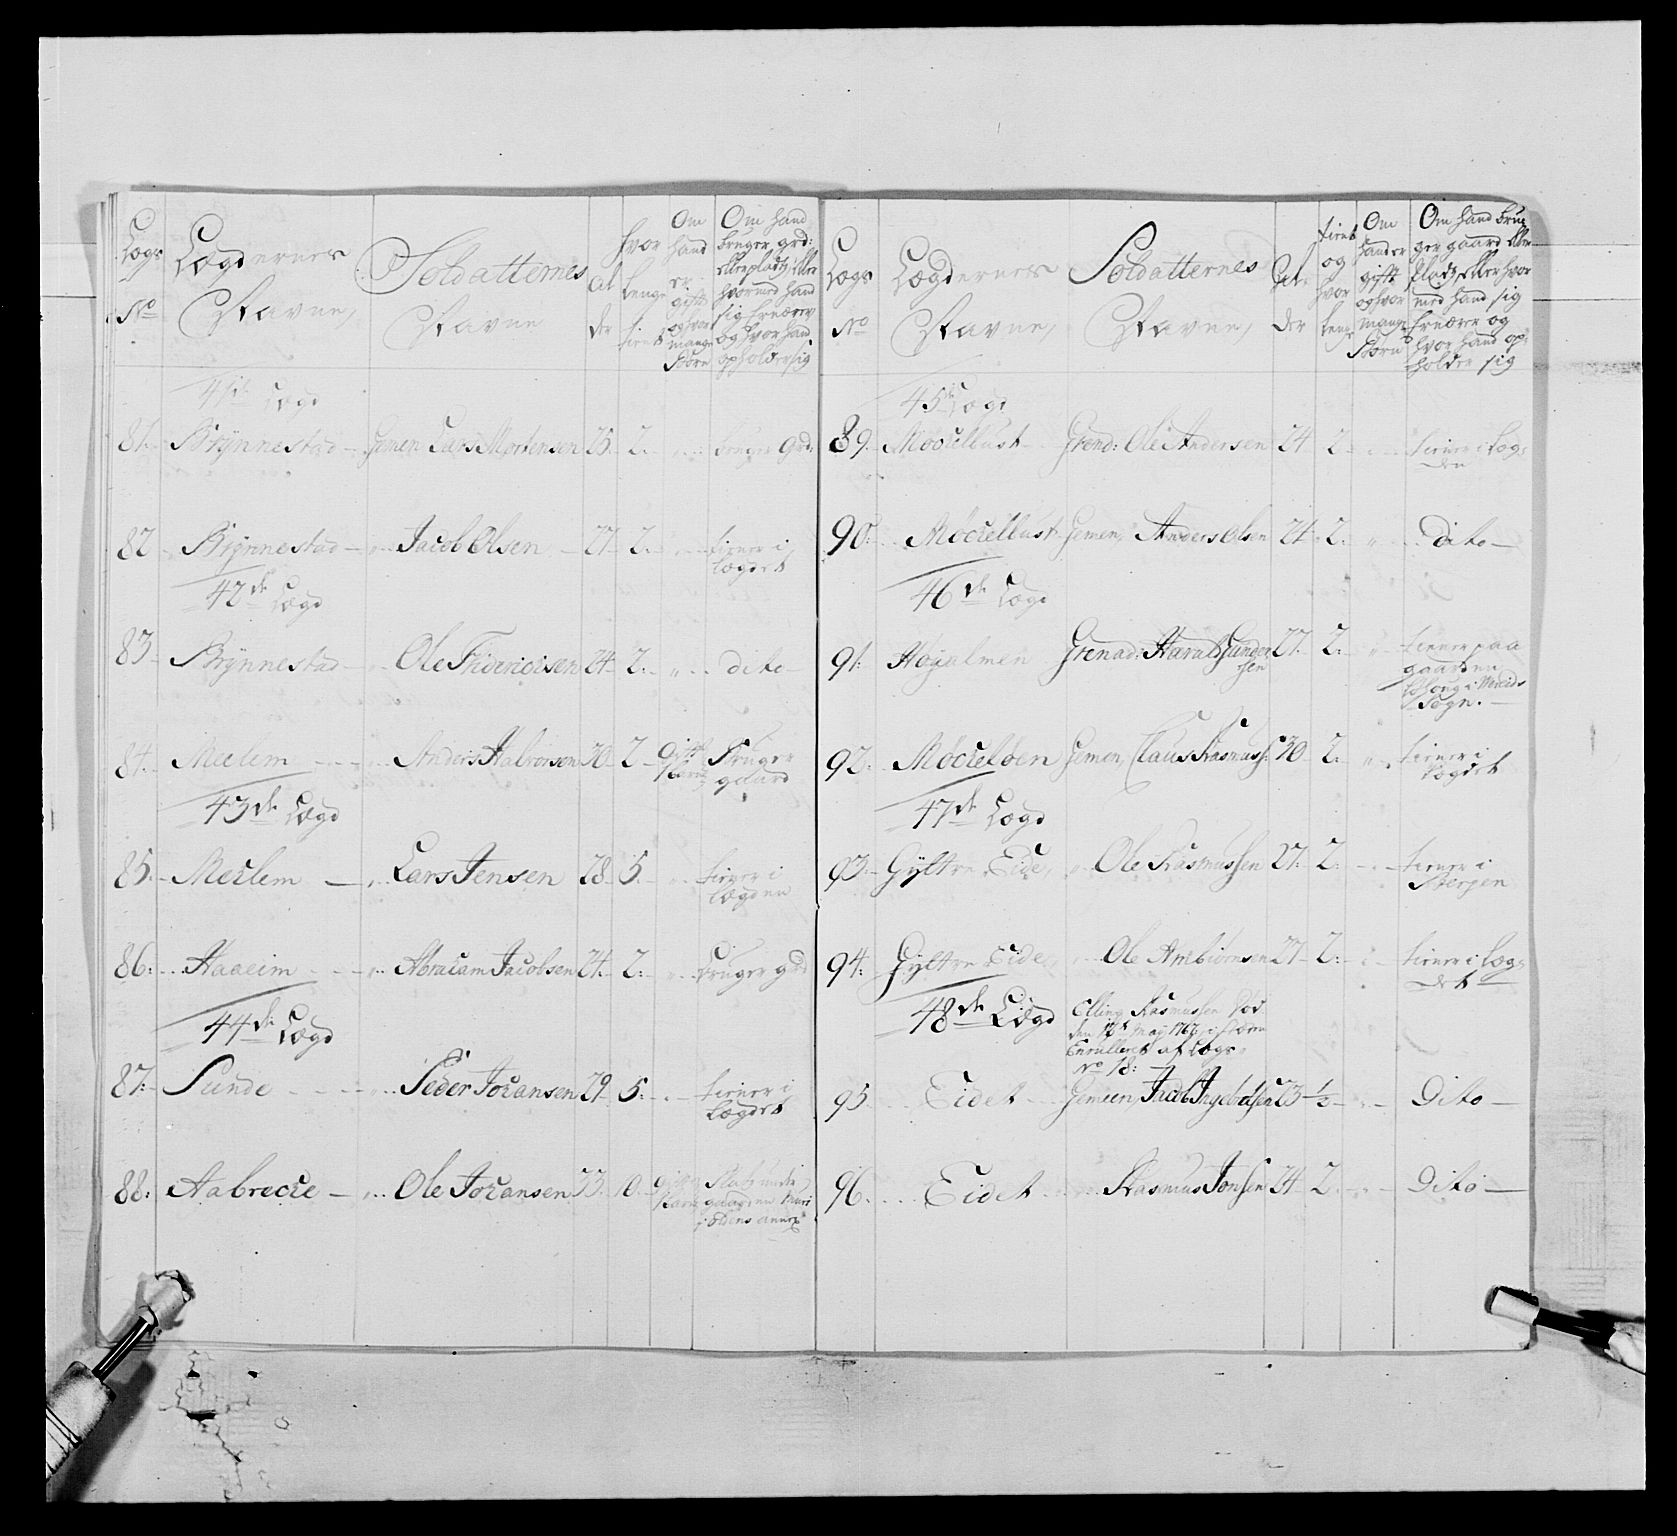 Lægs No
Lægdernes Navne,
Soldatternes Navne
Al der
hvor lenge tient
Om hand er gift og hvor mange Børn
Om hand bruger grd: eller platz eller hvormed hand sig ernærer og hvor hand opholder sig
41de Lægd
81. Brÿnnestad Gemen Lars Mortensen 25 2. bruger grd:
82 Brÿnnestad Jacob Olsen 27 2. tiener i lægdet
42de Lægd
83 Brÿnnestad Ole Friderichsen 24 2. dito
84. Meelem Anders Halvorsen 30 2 gift 1 barn bruger gaard
43de Lægd
85. Meelem Lars Jensen 28 5. tiener i lægden
86. Haaeim Abraham Jacobsen 24. 2. bruger grd
44de Lægd
87. Sunde Peder Johansen 29 5. tiener i Lægdet
88. Aabrecke Ole Johansen 33 10 gift 1 barn Plads under gaarden i Oldens annex
Lægs No
Lægdernes Navne,
Soldatternes Navne,
Al der
tient og hvor lenge
Om hand er gift og hvor mange Børn
Om hand bruger gaard eller Platz eller hvor med hand sig ernærer og hvor hand opholder sig
45de Lægd
89. Möcellbust Grend: Ole Andersen 24 2 tiener i Lægden
90. Möcellbust Gemen, Anders Olsen 24 2. Dito
46de Lægd
91. Høyalmen Grenad: Harald Gundersen 27. 2. tiener paa gaarden i Sogn.
92. Möcleboen Gemen, Claus Rasmuss: 30 2. tiener i Lægdet
47de Lægd
93. Gÿltre Eide, Ole Rasmussen 27. 2. tiener i Bergen
94. Gÿltre Eide, Ole Arnbiörnsen 27 2. tiener i Lægdet
48de Lægd
Elling Rasmussen död den 18de Maÿ 1767 Enrulleret af Lægs No 18:
95. Eidet Gemeen, Jacob 23 ½ Dito
96. Eidet Rasmus Jonsen 24 2. Dito